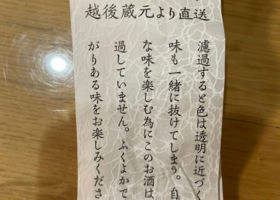 越後蔵元より直送
濾過すると色は透明に近づく
味も一緒に抜けてしまう。自
な味を楽しむ為にこのお酒は
過していません。ふくよかで
がりある味をお楽しみくださ